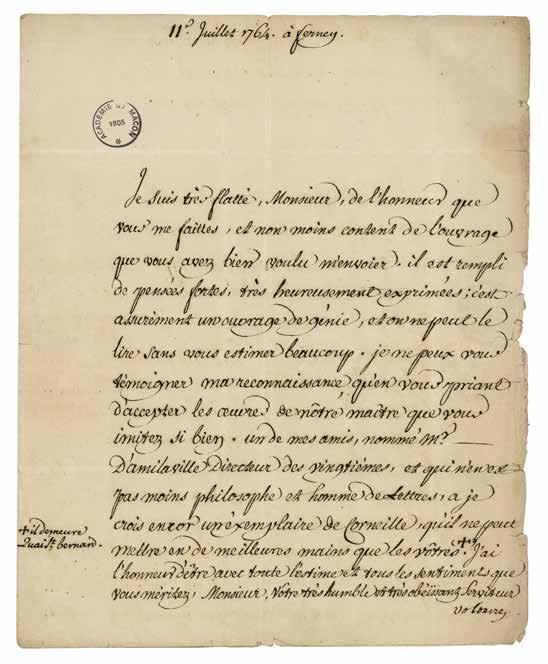 11e. Juillet 1764. à ferney.
ACADÉMIE DE MACON
1805
Je suis très flatté, Monsieur, de l'honneur que
vous me faittes, et non moins content de l'ouvrage
que vous avez bien voulu m'envoier. il est rempli
de pensées fortes, très heureusement exprimées; c'est
assurément un ouvrage de génie, et on ne peut le
lire sans vous estimer beaucoup. je ne peux vous
témoigner ma reconnaissance qu'en vous priant
d'accepter les œuvres de nôtre maître que vous
imitez si bien. un de mes amis, nommé Mr.
D'amilaville Directeur des vingtiémes, et qui n'en est
pas moins philosophe et homme de Lettres, a je
crois encor un éxemplaire de Corneille, qu'il ne peut
mettre en de meilleures mains que les vôtres. + J'ai
l'honneur d'être avec toute l'estime et tous les sentiments que
vous méritez, Monsieur, Votre très humble et très obéissant Serviteur
Voltaire
+ il demeure
Quai St. bernard.